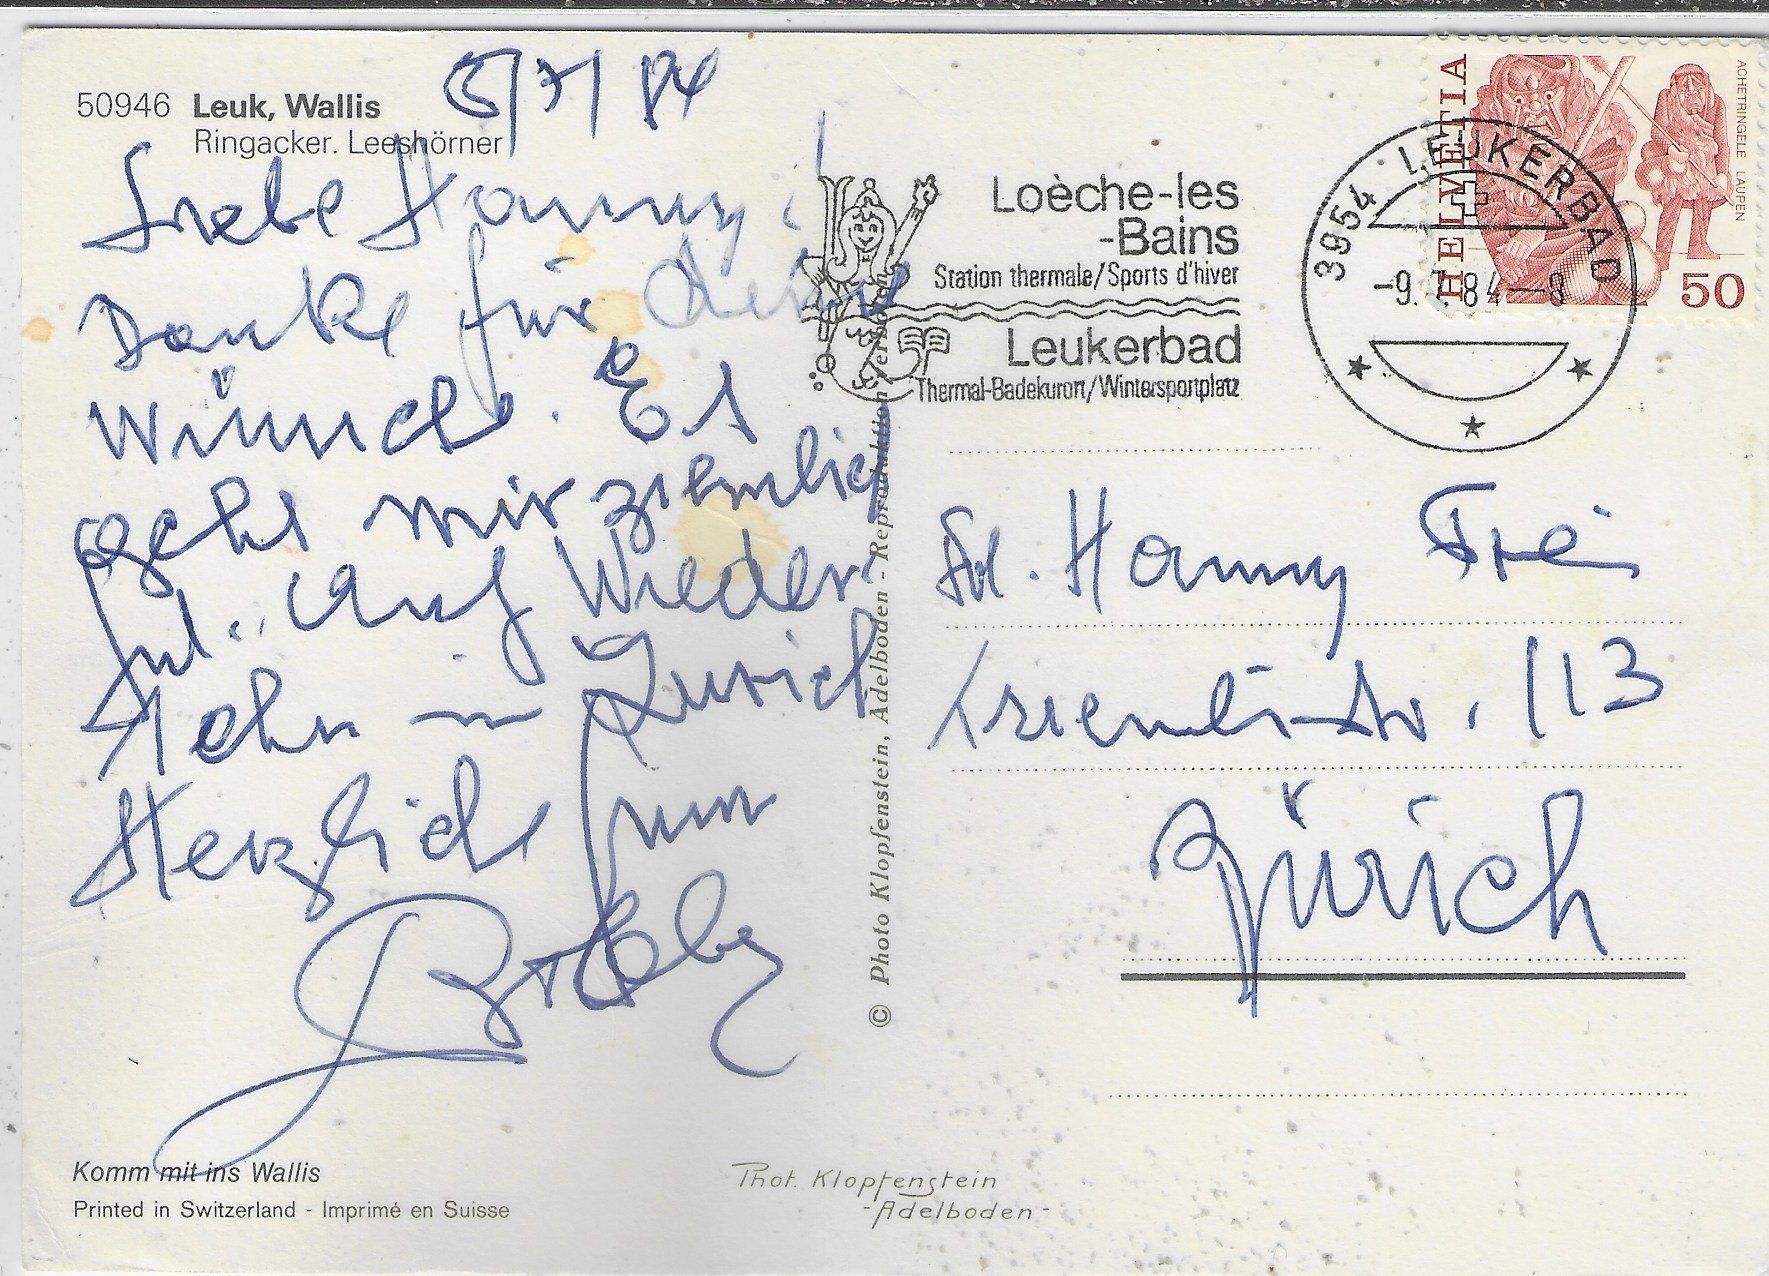 50946 Leuk, Wallis
Ringacker. Leeshörner
5/7/84
Liebe Hanny!
Danke für deine
Wünsche. Es
geht mir ziemlich
gut. Auf Wieder
sehn in Zürich
Herzlich
Komm mit ins Wallis
Printed in Switzerland - Imprimé en Suisse
© Photo Klopfenstein, Adelboden - Reproduktion verboten
Phot. Klopfenstein
-Adelboden-
Loèche-les
-Bains
Station thermale/Sports d'hiver
Leukerbad
Thermal-Badekurort/Wintersportplatz
3954 LEUKERBAD
-9.7.84-8
HELVETIA
ACHETRINGELE LAUPEN
50
Hanny Frei
Triemlistr. 113
Zürich